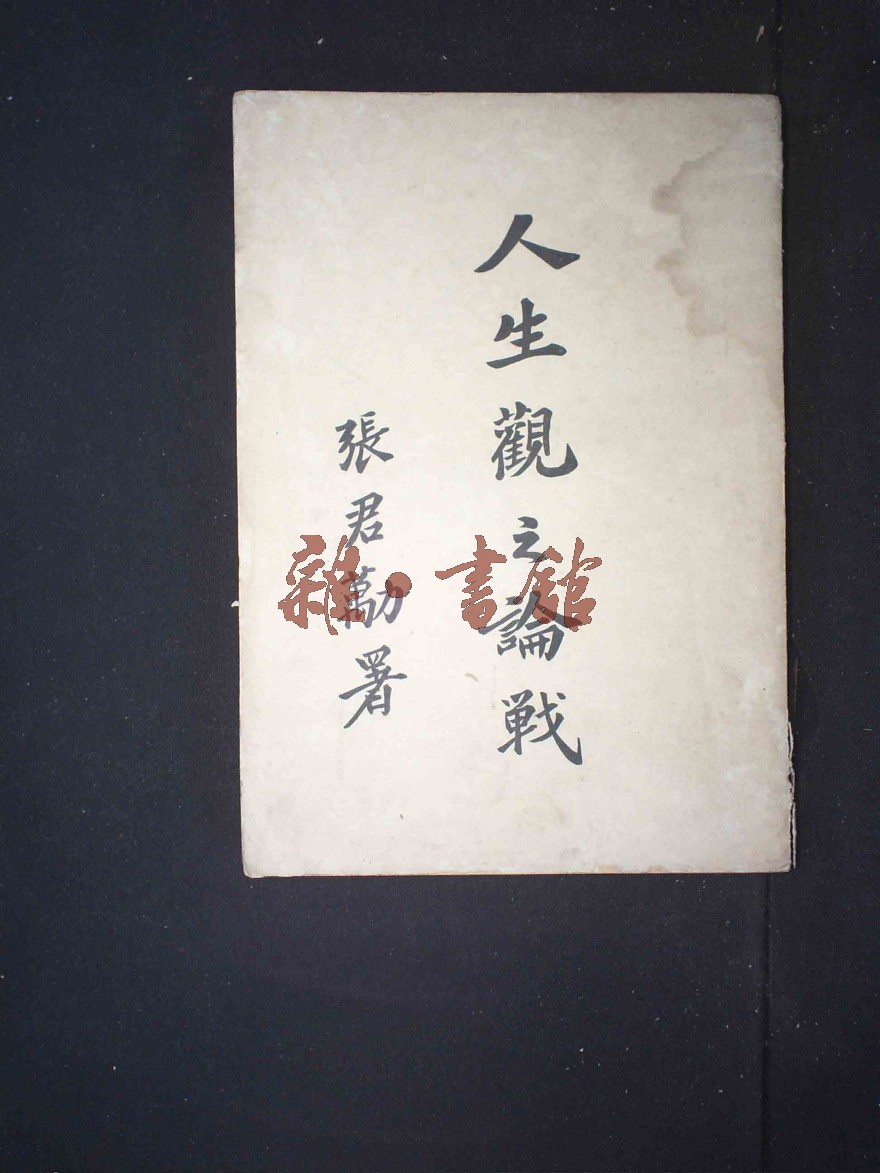 人生觀之論戰
張君勱署
雜·書館